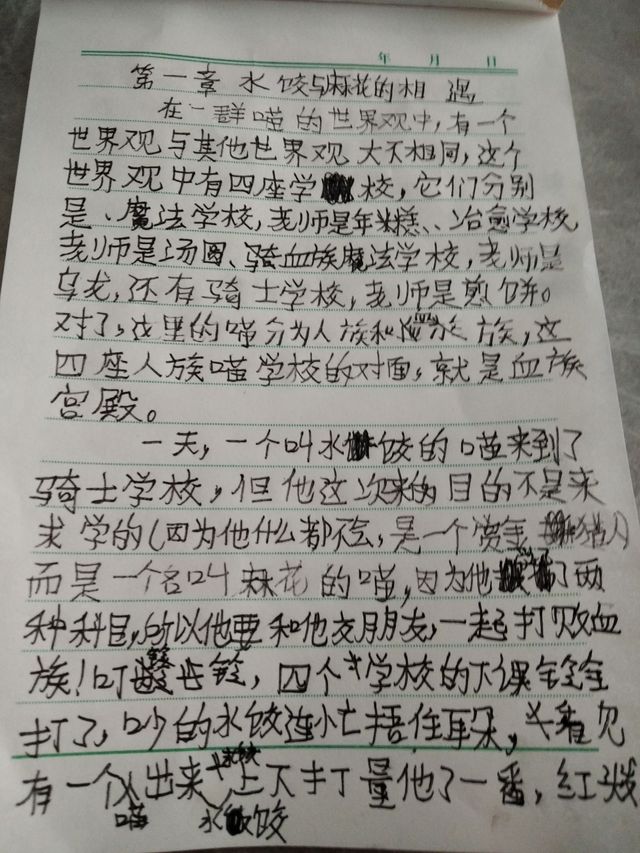 年 月 日
第一章 水饺与麻花的相遇
在一群喵的世界观中,有一个
世界观与其他世界观大不相同,这个
世界观中有四座学校,它们分别
是、魔法学校,老师是年糕、、冶愈学校,
老师是汤圆、骑血族魔法学校,老师是
乌龙,还有骑士学校,老师是煎饼。
对了,这里的喵分为人族和血族,这
四座人族喵学校的对面,就是血族
宫殿。
一天,一个叫水饺的喵来到了
骑士学校,但他这次来的目的不是来
求学的(因为他什么都不会,是一个赏金猎人
而是一个名叫麻花的喵,因为他了两
种科目,所以他要和他交朋友,一起打败血
族!叮铃,四个学校的下课铃
打了,吵的水饺连忙捂住耳朵,看见
有一个喵出来水饺上下打量他了一番,红线